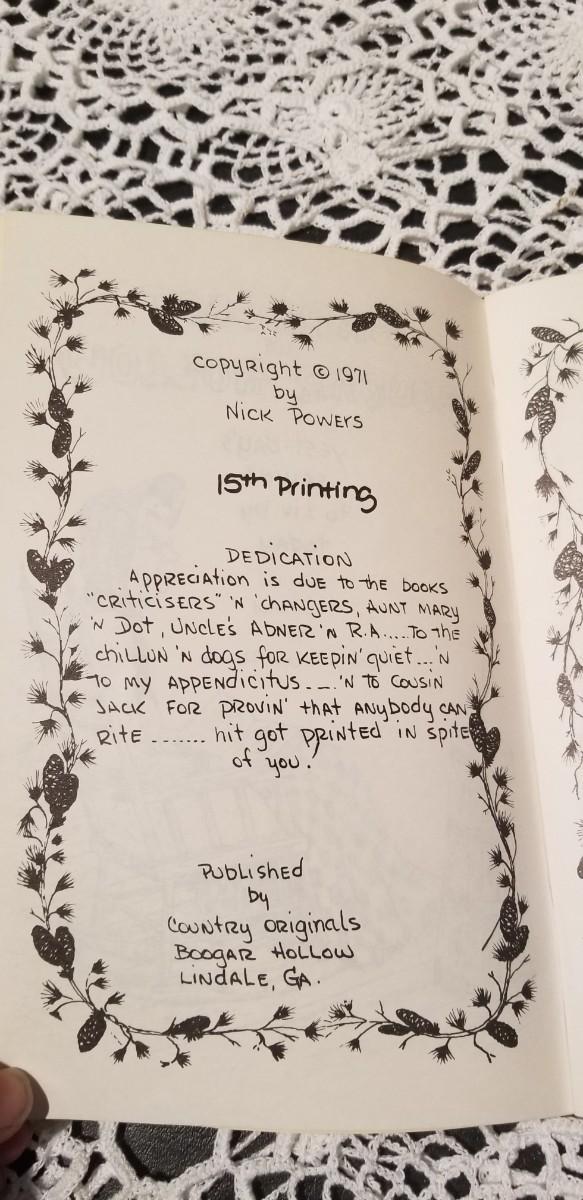 Copyright © 1971
by
Nick Powers
15th Printing
DEDICATION
Appreciation is due to the books
"criticisers" 'n 'changers, Aunt Mary
'n Dot, Uncle's Abner 'n R.A.....To the
chillun 'n dogs for keepin' quiet...'n
to my appendicitus....'n to Cousin
Jack for provin' that anybody can
rite ....... hit got printed in spite
of you.
Published
by
Country Originals
Boogar Hollow
Lindale, Ga.